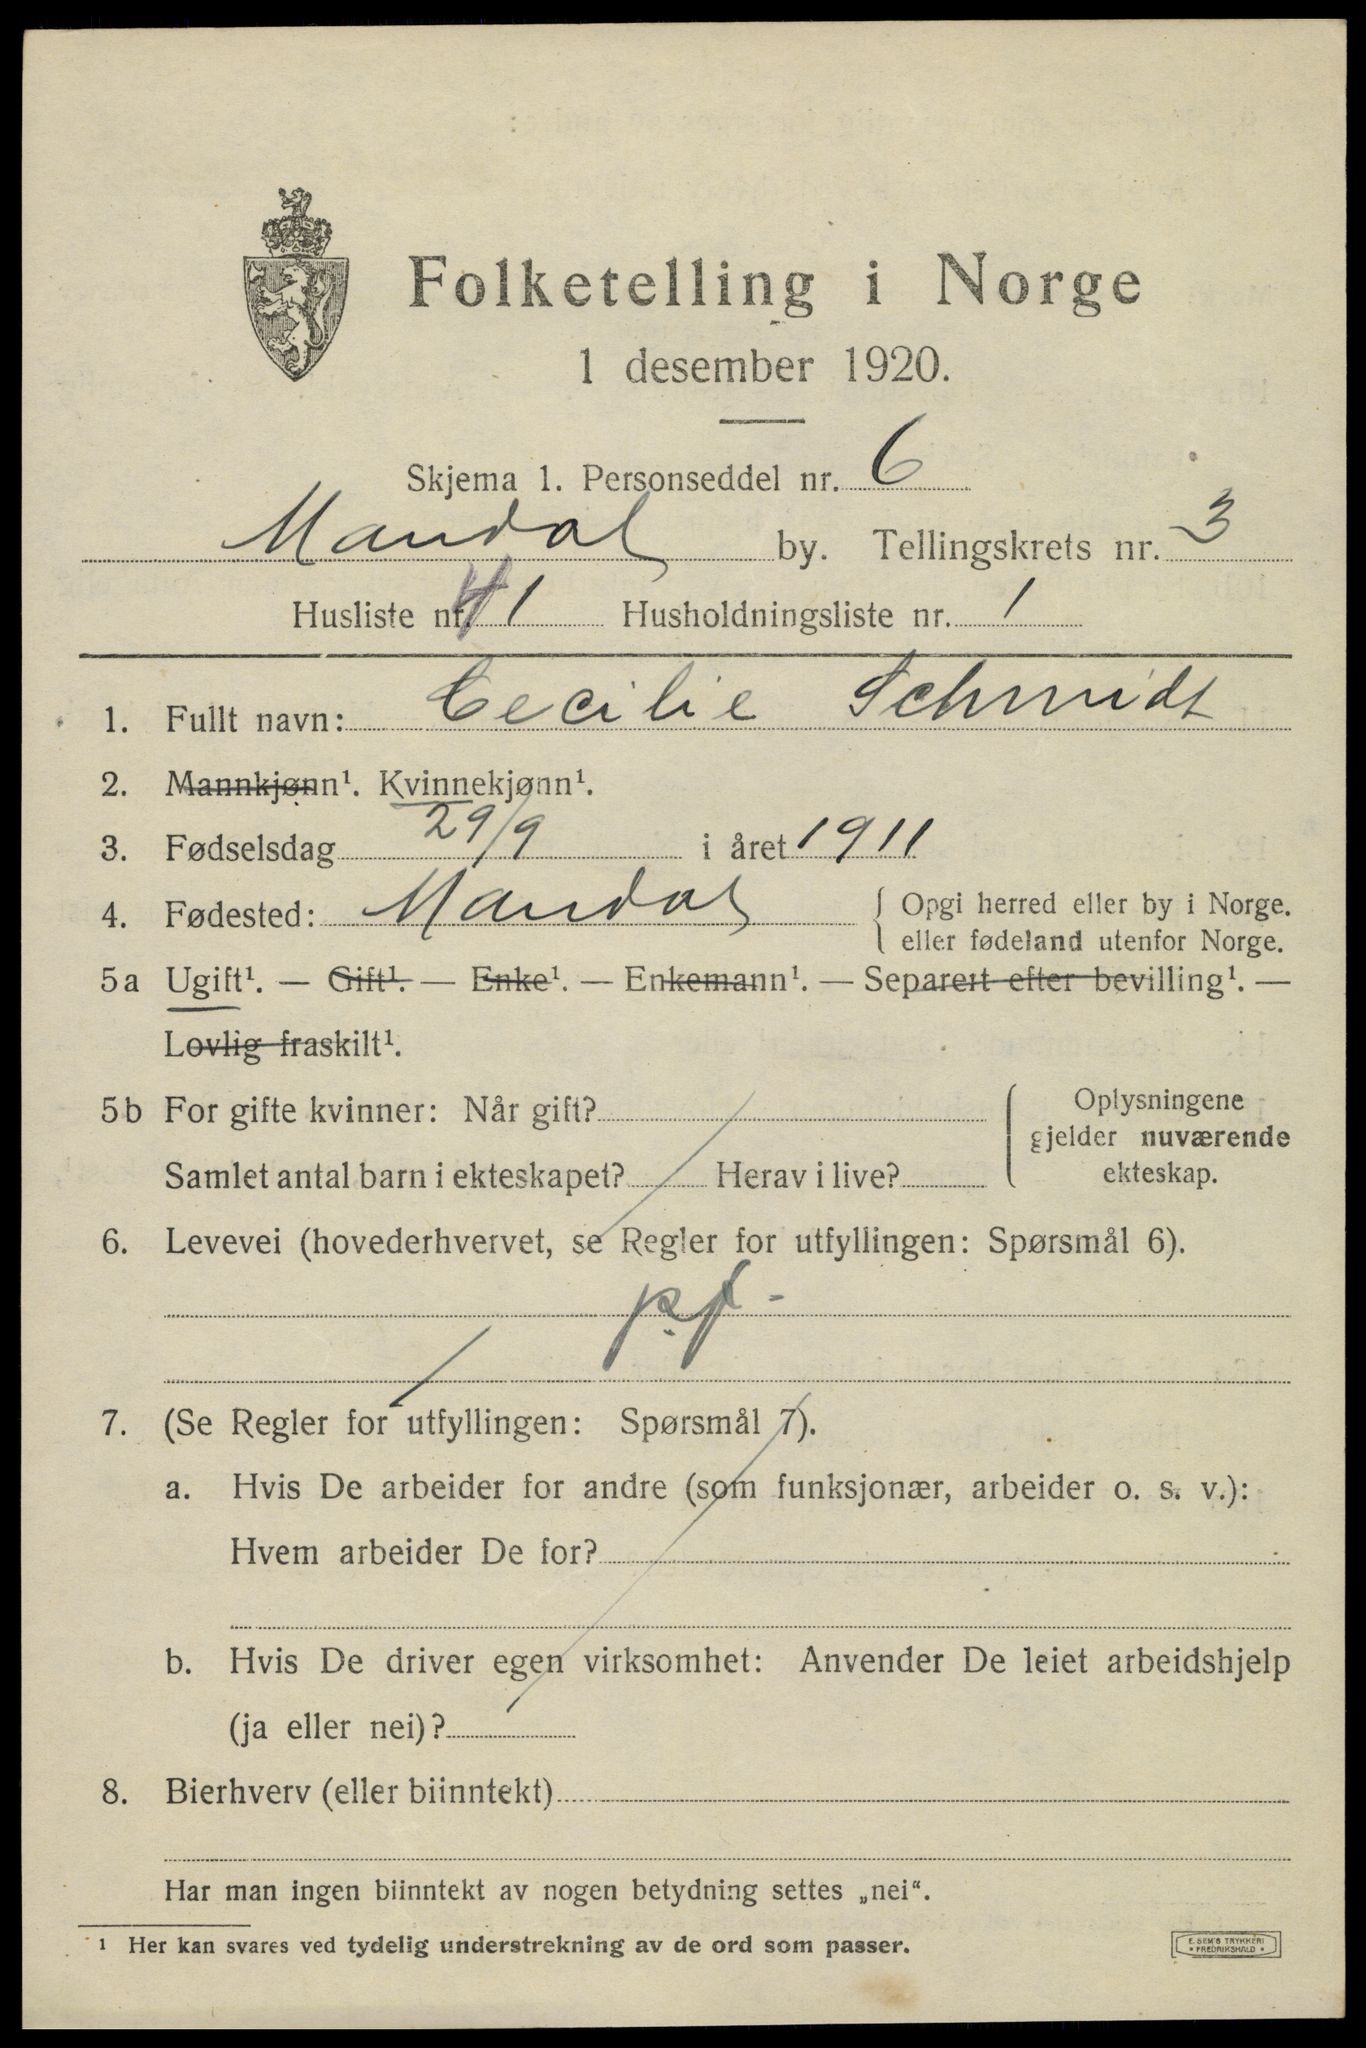 Folketelling i Norge
1 desember 1920.
Skjema 1. Personseddel nr. 6
Mandal by. Tellingskrets nr. 3
Husliste nr. 41 Husholdningsliste nr. 1
1. Fullt navn: Cecilie Schmidt
2. Mannkjønn¹. Kvinnekjønn¹.
3. Fødselsdag 29/9 i året 1911
4. Fødested: Mandal { Opgi herred eller by i Norge.
eller fødeland utenfor Norge.
5a Ugift¹. — Gift¹. — Enke¹. — Enkemann¹. — Separert efter bevilling¹. —
Lovlig fraskilt¹.
5b For gifte kvinner: Når gift?
Samlet antal barn i ekteskapet? Herav i live?
Oplysningene
gjelder nuværende
ekteskap.
6. Levevei (hovederhvervet, se Regler for utfyllingen: Spørsmål 6).
p.f -
7. (Se Regler for utfyllingen: Spørsmål 7).
a. Hvis De arbeider for andre (som funksjonær, arbeider o. s. v.):
Hvem arbeider De for?
b. Hvis De driver egen virksomhet: Anvender De leiet arbeidshjelp
(ja eller nei)?
8. Bierhverv (eller biinntekt)
Har man ingen biinntekt av nogen betydning settes „nei“.
¹ Her kan svares ved tydelig understrekning av de ord som passer.
E. SEM'S TRYKKERI
• FREDRIKSHALD •